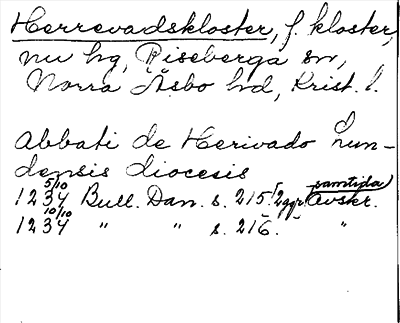 Herrevadskloster, f. kloster,
nu hg, Riseberga sn,
Norra Åsbo hd, Krist. l.
Abbati de Herivado Lun-
densis diocesis
1234 5/10 Bull. Dan. s. 215. [2 ggr. samtida Avskr.
1234 10/10 " " s. 216. "